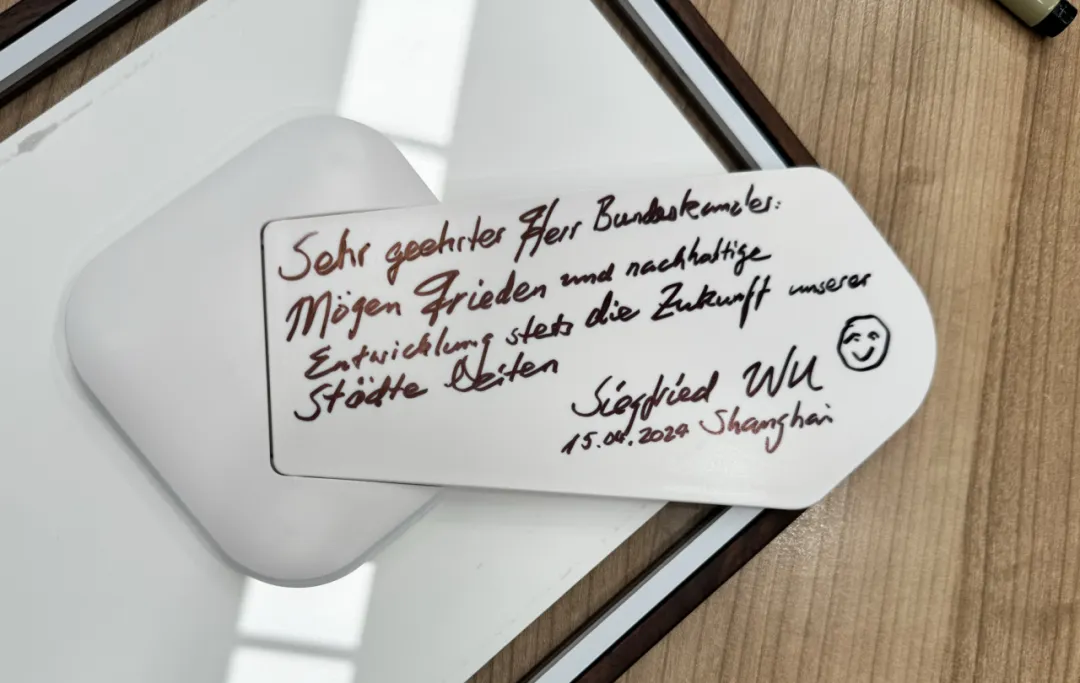 Sehr geehrter Herr Bundeskanzler:
Mögen Frieden und nachhaltige
Entwicklung stets die Zukunft unserer
Städte leiten
Siegfried WU
15.04.2024 Shanghai